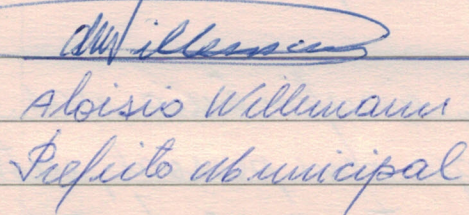 AWillemann
Aloisio Willemann
Prefeito Municipal